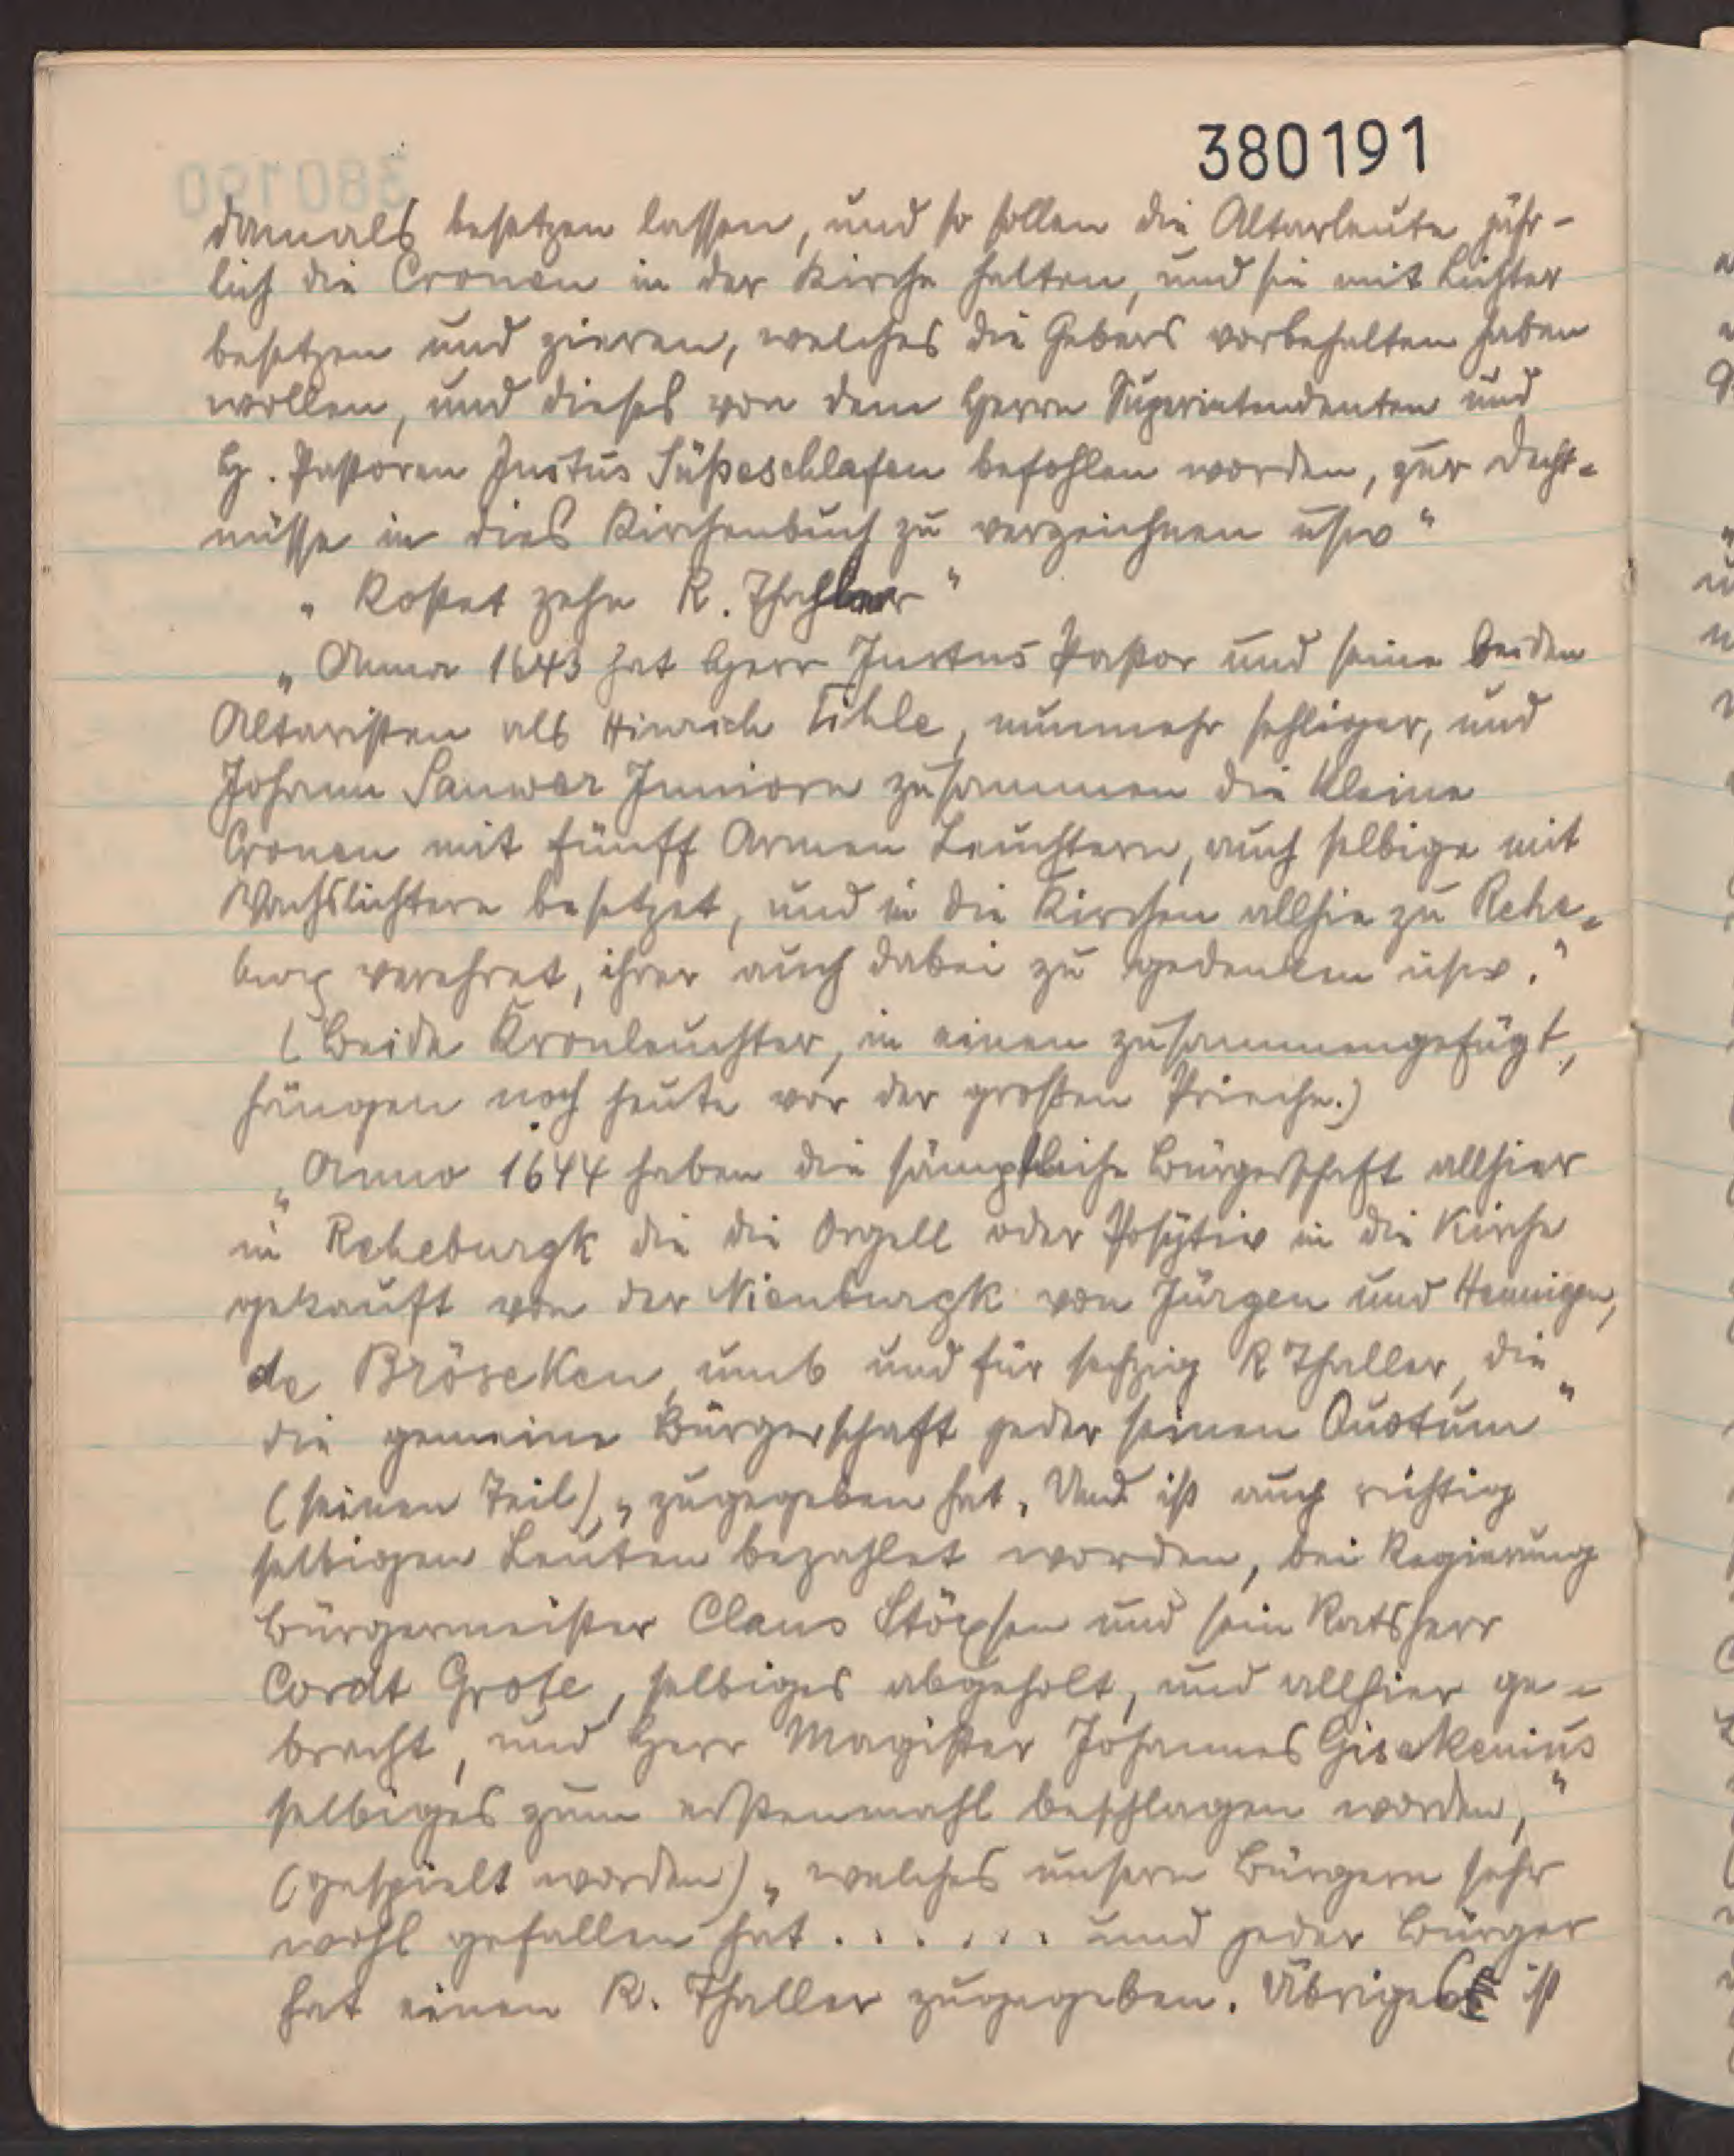 380191
damals besetzen lassen, und so sollen die Altarleute jähr-
lich die Cronen in der Kirche halten, und sie mit Lichter
besetzen und zieren, welches die Gebers vorbehalten haben
wollen, und dieses von dem Herrn Superintendenten und
H. Pastoren Justus Süßeschlafen befohlen worden, zur Decht-
nüsse in dies Kirchenbuch zu verzeichnen usw"
„ Kostet zehn R. Thahler"
„ Anno 1643 hat Herr Justus Pastor und seine beiden
Altaristen als Hinrich Tihle, nunmehr sehliger, und
Johann Sanwer Juniorn zusammen die kleine
Cronen mit fünff Armen Leuchtern, auch selbige mit
Wachslichtern besetzet, und in die Kirchen allhie zu Rehe-
burg verehret, ihrer auch dabei zu gedenken usw."
(Beide Kronleuchter, in einen zusammengefügt,
hängen noch heute vor der großen Prieche.)
„Anno 1644 haben die sämptliche Bürgerschaft allhier
in Reheburgk die die Orgell oder Positiv in die Kirche
gekauft von der Nienburgk von Jürgen und Hennigen,
de Bröseken, umb und für sechzig R Thaller, die
die gemeine Bürgerschaft jeder seinen Quotum"
(seinen Teil) „zugegeben hat. Und ist auch richtig
selbigen Leuten bezahlet worden, bei Regierung
Bürgermeister Claus Stöxsen und sein Ratsherr
Cordt Grote, selbiges abgeholt, und allhier ge-
bracht, und Herr Magister Johannes Gisekenius
selbiges zum erstenmahl beschlagen worden,"
(gespielt worden) „welches unsern Bürgern sehr
wohl gefallen hat . . . . . . . und jeder Bürger
hat einen R. Thaller zugegeben. Übriges ist